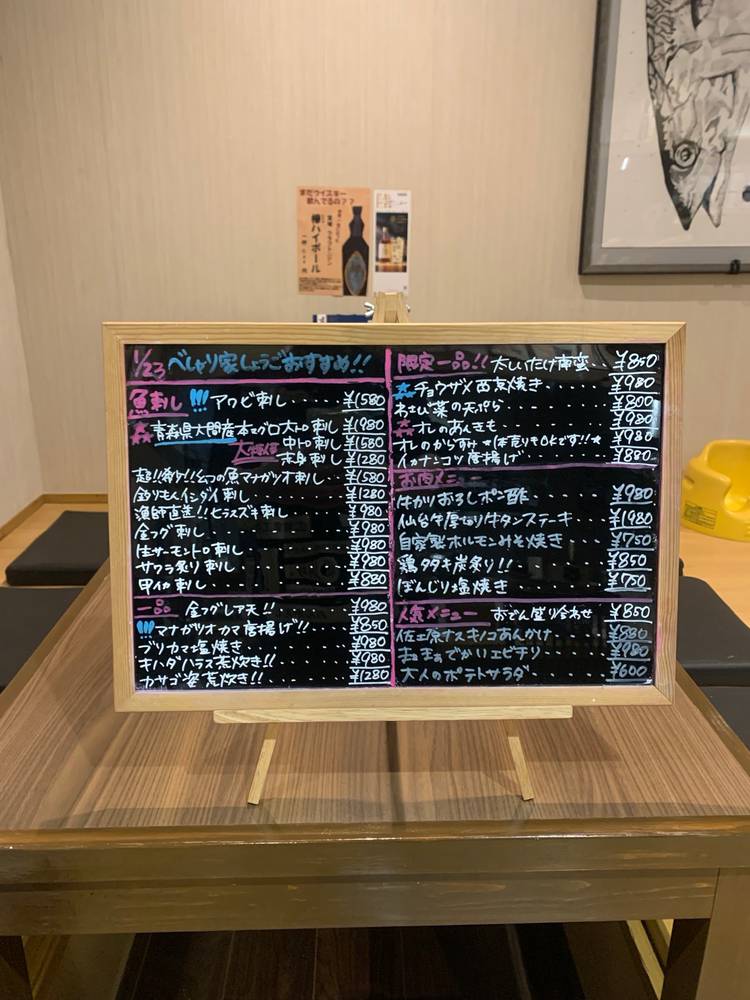 まだウイスキー
飲んでるの??
樽ハイボール
1/23 べしゃり家しょうごおすすめ!!
魚刺し !!! アワビ刺し ¥1580
青森県大間産本マグロ大トロ刺し ¥1980
中トロ刺し ¥1580
赤身刺し ¥1280
超!!希少!!幻の魚マナガツオ刺し ¥1580
釣りもんイシダイ刺し ¥1280
漁師直送!!ヒラスズキ刺し ¥980
金フグ刺し ¥980
生サーモントロ刺し ¥980
サワラ炙り刺し ¥980
甲イカ刺し ¥880
一品 金フグレア天!! ¥980
!!! マナガツオカマ唐揚げ!! ¥850
ブリカマ塩焼き ¥980
キハダハラス荒炊き!! ¥980
カサゴ姿荒炊き!! ¥1280
限定一品!! 大しいたけ南蛮 ¥850
チョウザメ西京焼き ¥980
わさび葉の天ぷら ¥800
オレのあんきも ¥980
オレのからすみ ★1本売りもOKです!!★ ¥980
イカナンコツ唐揚げ ¥880
お肉メニュー
牛かりおろしポン酢 ¥980
仙台牛厚切り牛タンステーキ ¥1980
自家製ホルモンみそ焼き ¥750
鶏タタキ炭炙り!! ¥850
ぼんじり塩焼き ¥750
人気メニュー おでん盛り合わせ ¥850
佐土原ナスキノコあんかけ ¥880
でかいエビチリ ¥980
大人のポテトサラダ ¥600